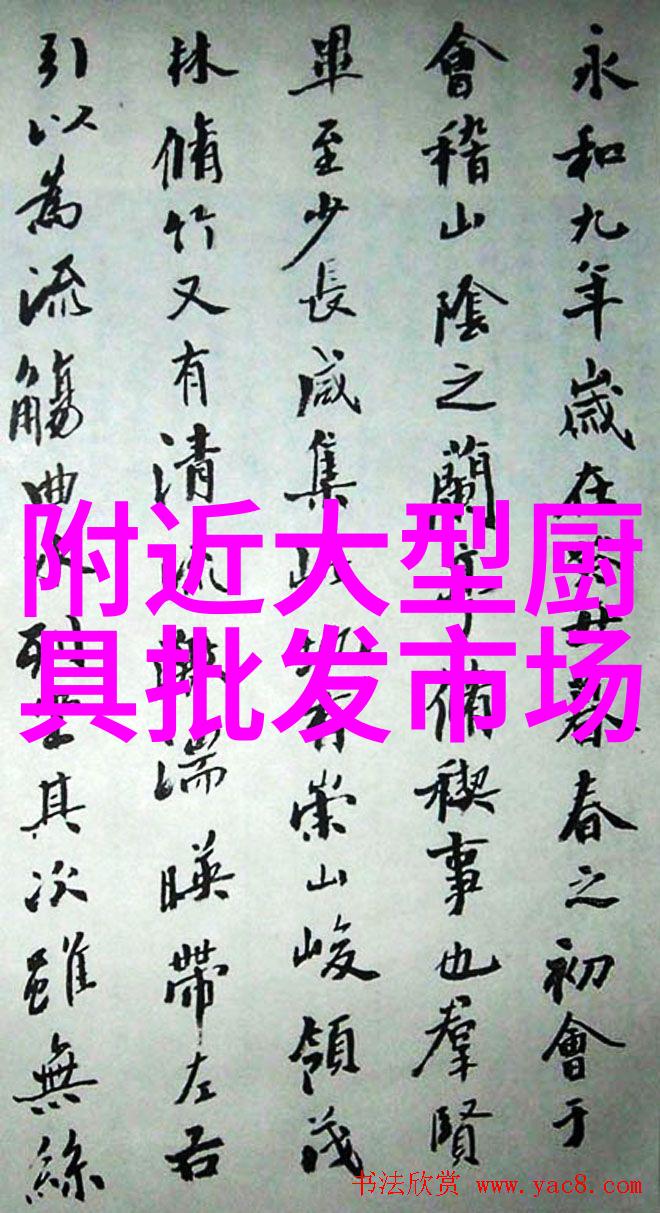 永和九年歲在癸丑暮春之初會于
會稽山陰之蘭亭脩禊事也羣賢
畢至少長咸集此地有崇山峻領茂
林脩竹又有清流激湍暎帶左右
引以為流觴曲水列坐其次雖無絲
附近大型厨
具批发市场
书法欣赏 www.yac8.com